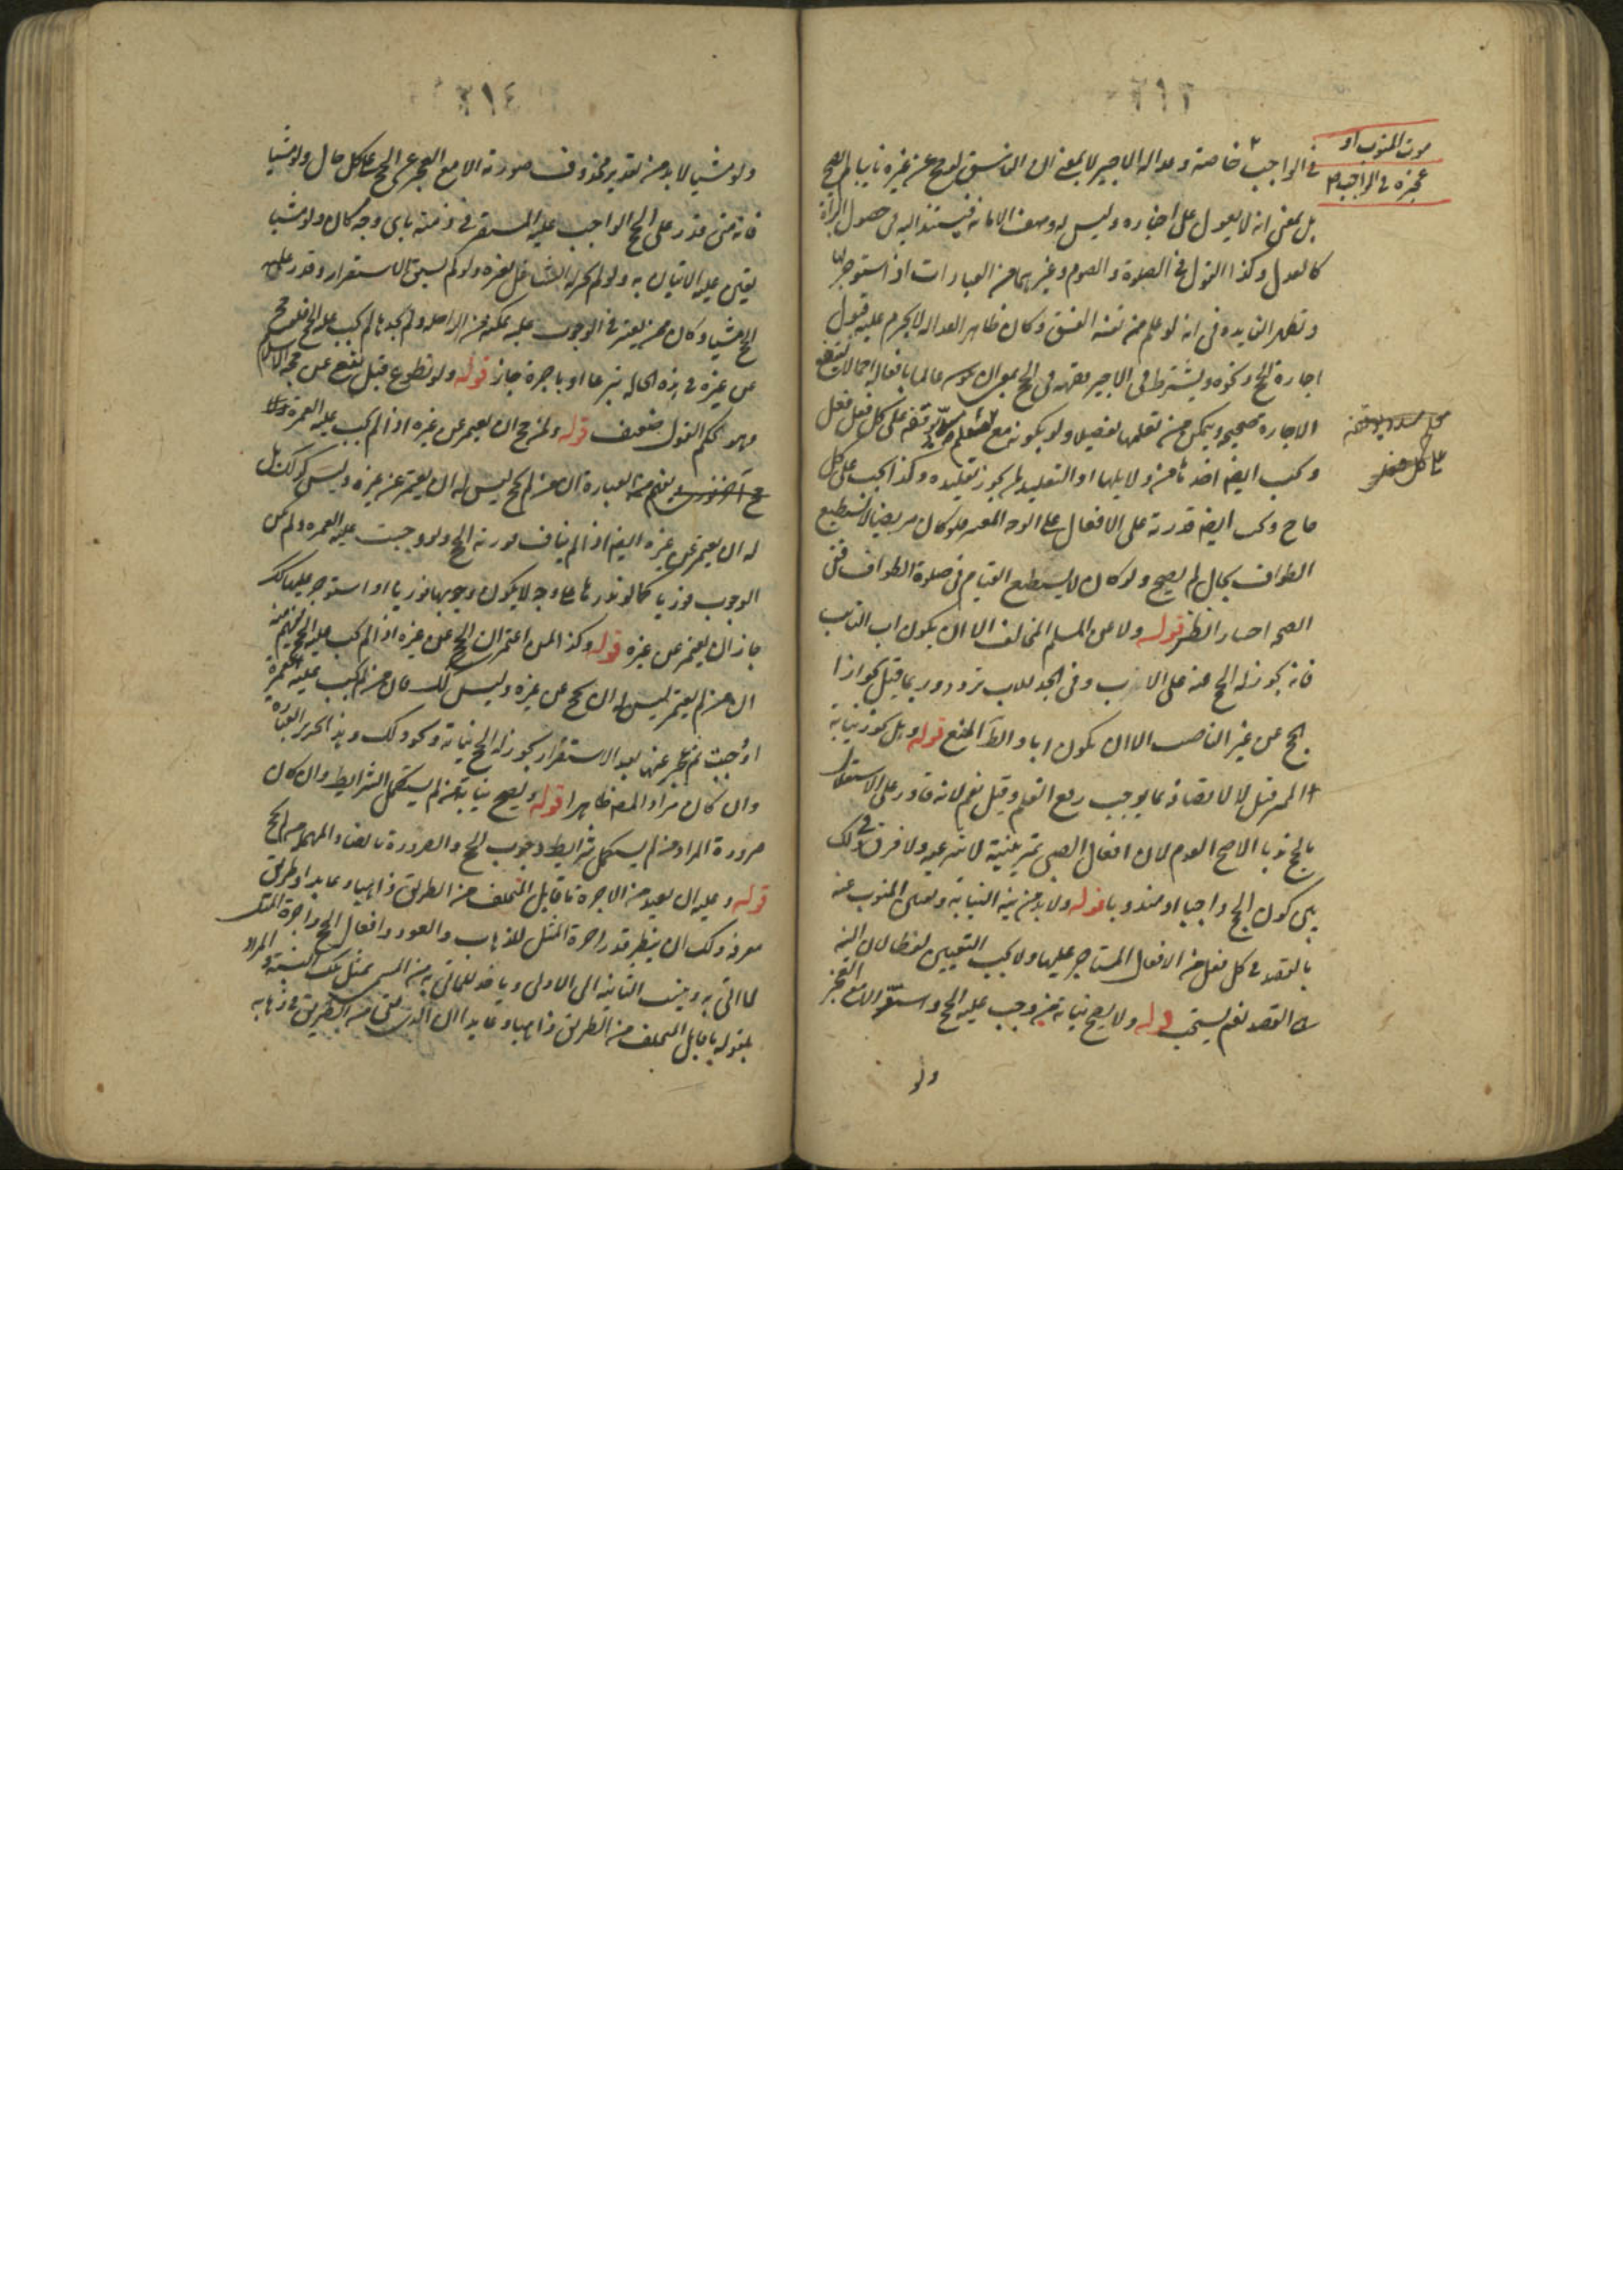 موت المنوب او
عجزه في الواجب
في الواجب خاصة وعدالة الاجير لا بمعنى ان الفاسق لو حج عن غيره نايبا لم يصح
بل بمعنى انه لا يعول على اخباره وليس له وصف الامانة فيستند اليه في حصول البراة
كالعدل وكذا القول في الصلوة والصوم وغيرهما من العبادات اذا استوجر لها
وتظهر الفايدة في انه لو علم من نفسه الفسق وكان ظاهر العدالة لا يحرم عليه قبول
اجارة الحج ونحوه ويشترط في الاجير فقهه في الحج بمعنى ان عالما بافعاله اجمالا ليقع
الاجارة صحيحة ويتمكن من تعلمها تفصيلا ولو بكونه مع على كل فعل فعل
على كل فعل
ويجب ايضا اخذ لا يلها او التقليد لمن يجوز تقليده وكذا يجب على كل
حاج ويجب ايضا قدرته على الافعال على الوجه المعتبر فلو كان مريضا لا يستطيع
الطواف بحال لم يصح ولو كان لا يستطيع القيام في صلوة الطواف ففي
الصحة النظر قوله ولا عن المسلم المخالف الا ان يكون اب النايب
فانه يجوز له الحج عنه على الاقرب وفي الجد للاب تردد وربما قيل بجواز ان
يحج عن غير الناصب الا ان يكون ابا والظ المنع قوله وهل يجوز نيابة
المميز قيل لا لاتصافه بما يوجب رفع القلم وقيل نعم لانه قادر على الاستقلال
بالحج ندبا الاصح العدم لان افعال الصبي تمرينية لا شرعية ولا فرق في ذلك
بين كون الحج واجبا او مندوبا قوله ولا بد من نية النيابة وتعيين المنوب عنه
بالقصد في كل فعل من الافعال المستاجر عليها ولا يجب التعيين لفظا لان النية
القصد نعم يستحب قوله ولا يصح نيابة من وجب عليه الحج واستقر الا مع العجز
ولو
٢١٤
ولو مشيا لا بد من تقدير محذوف صورته الا مع العجز عن الحج على كل حال ولو مشيا
فانه متى قدر على الحج الواجب عليه المستقر في ذمته باي وجه كان ولو مشيا
تعين عليه الاتيان به ولو لم يجز له التشاغل بغيره ولو لم يسبق الاستقرار وقدر على
الحج مشيا وكان ممن يعتبر في الوجوب عليه تمكنه من الراحلة ولم يجدها لم يجب عليه الحج فلو حج
عن غيره في هذه الحالة تبرعا او باجرة جاز قوله ولو تطوع قبل يقع عن حجة الاسلام
وهو تحكم القول ضعيف قوله ولمن حج ان يعتمر عن غيره اذا لم يجب عليه العمرة
العبارة ان من لم يحج ليس له ان يعتمر عن غيره وليس كذلك بل
له ان يعتمر عن غيره ايضا اذا لم يناف فورية الحج ولو وجبت عليه العمرة ولم يكن
الوجوب فوريا كما لو نذرها على وجه لا يكون وجوبها فوريا او استوجر عليها كذلك
جاز ان يعتمر عن غيره قوله وكذا لمن اعتمر ان يحج عن غيره اذا لم يجب عليه الحج يفهم منه
ان من لم يعتمر ليس له ان يحج عن غيره وليس كذلك فان من لم يجب عليه العمرة
او وجبت ثم عجز عنها بعد الاستقرار يجوز له الحج نيابة ونحو ذلك وهذا تحرير العبارة
وان كان مراد المص ظاهرا قوله ويصح نيابة من لم يستكمل الشرايط وان كان
صرورة المراد من لم يستكمل شرايط وجوب الحج والصرورة بالصاد المهملة من لم يحج
قوله وعليه ان يعيد من الاجرة ما قابل المتخلف من الطريق ذاهبا وعايدا وطريق
معرفة ذلك ان ينظر قدر اجرة المثل للذهاب والعود وافعال الحج واجرة المثل
لما اتى به وينسب الثانية الى الاولى وياخذ للماتي به من المسمى بمثل تلك النسبة والمراد
بقوله ما قابل المتخلف من الطريق ذاهبا وعايدا ان الذي بقي من الطريق في ذهابه